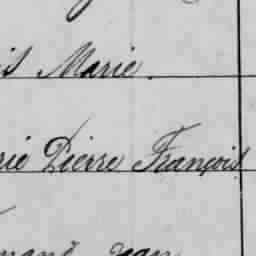 is Marie
rie Pierre François
mand Jean